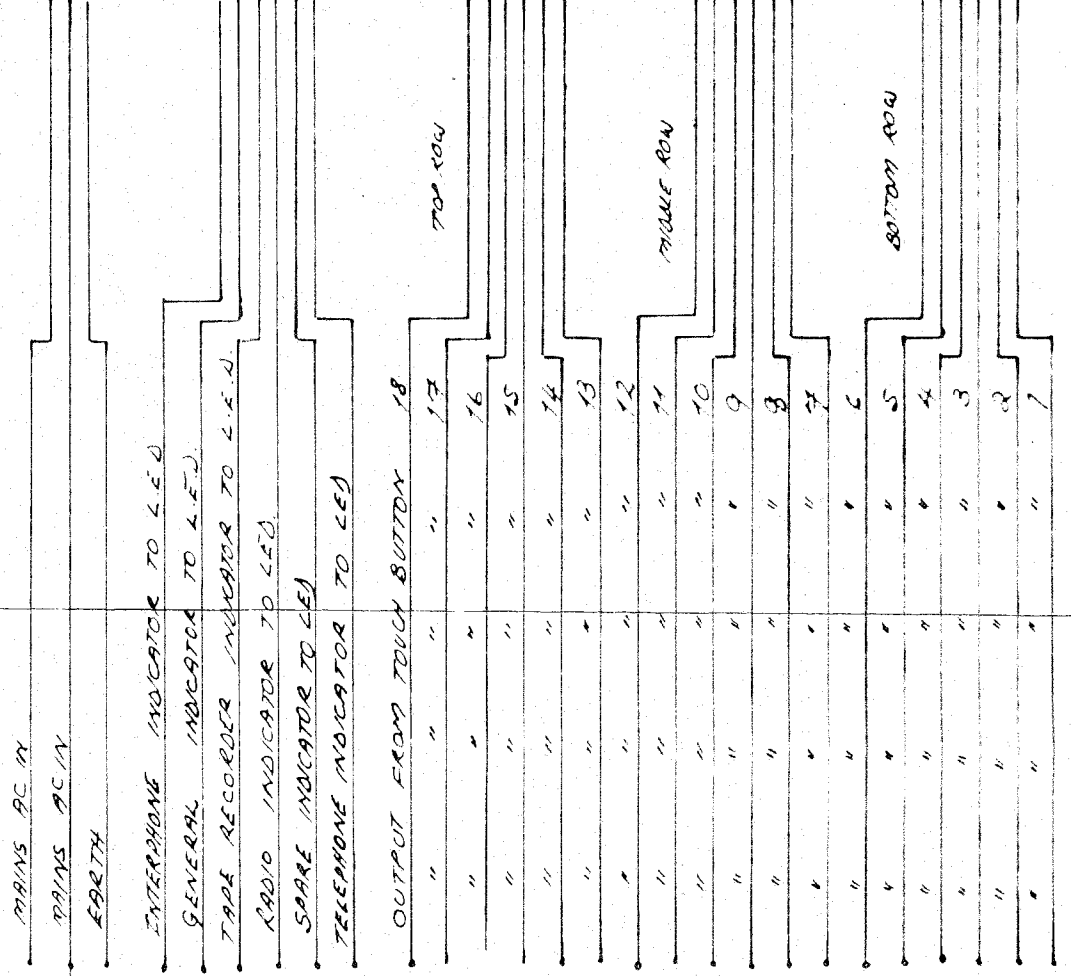 MAINS AC IN
MAINS AC IN
EARTH
INTERPHONE INDICATOR TO L.E.D
GENERAL INDICATOR TO L.E.D.
TAPE RECORDER INDICATOR TO L.E.D
RADIO INDICATOR TO LED.
SPARE INDICATOR TO LED
TELEPHONE INDICATOR TO LED
OUTPUT FROM TOUCH BUTTON 18
" " " " 17
" " " " 16
" " " " 15
" " " " 14
" " " " 13
" " " " 12
" " " " 11
" " " " 10
" " " " 9
" " " " 8
" " " " 7
" " " " 6
" " " " 5
" " " " 4
" " " " 3
" " " " 2
" " " " 1
TOP ROW
MIDDLE ROW
BOTTOM ROW